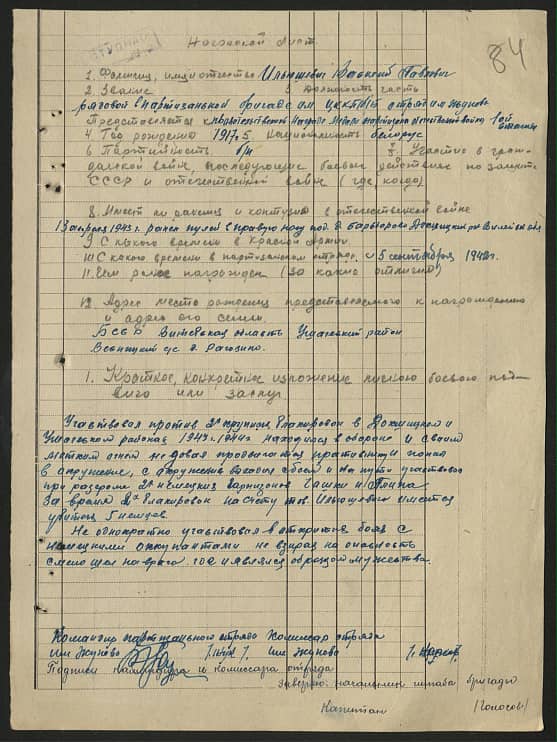 84
Наградной лист.
1. Фамилия, имя отчество Ильюшевич Василий Павлович
2. Звание 3 Должность часть
рядовой Партизанской бригады им ЦККП(б)Б отряд им Жукова
Представляется к правительственной награде Медаль партизана отечественной войны 1ой степени
4 Год рождения 1917г. 5. Национальность белорус
6 Партийность б/п 7 Участие в граж-
данской войне, последующие боевые действиях по защите
СССР и отечественной войне (где, когда)
8. Имеет ли ранения и контузии в отечественной войне
13 апреля 1943 г. ранен пулей в правую ногу под д. Докшицкого р-на Вилейской обл.
9 С какого времени в Красной Армии.
10 С какого времени в партизанском отряде. с 5 сентября 1942г.
11. Чем ранее награжден (за какие отличия)
12. Адрес место рождения представляемого к награждению
и адрес его семьи.
БССР Витебская область Ушачский район
с/с д. Рагозино.
1. Краткое, конкретное изложение личного боевого под-
вига или заслуг
Участвовал против 2х крупных блокировок в Докшицком и
Ушачском районах 1943г-1944г находился в обороне и своим
метким огнем не давал продвигатся противнику попал
в окружение, с окружения выходил с боем и на пути участвовал
при разгроме 2х немецких гарнизонов
За время 2х блокировок на счету тов Ильюшевич имеется
убитых 5 немцев.
Не однократно участвовал в открытых боях с
немецкими оккупантами не взирая на опасность
смело шел на врага где и являлся образцом мужества.
Командир партизанского отряда Комиссар отряда
им Жукова им Жукова
Подписи командира и комиссара отряда
Заверяю: начальник штаба бригады
Капитан /Голосов/